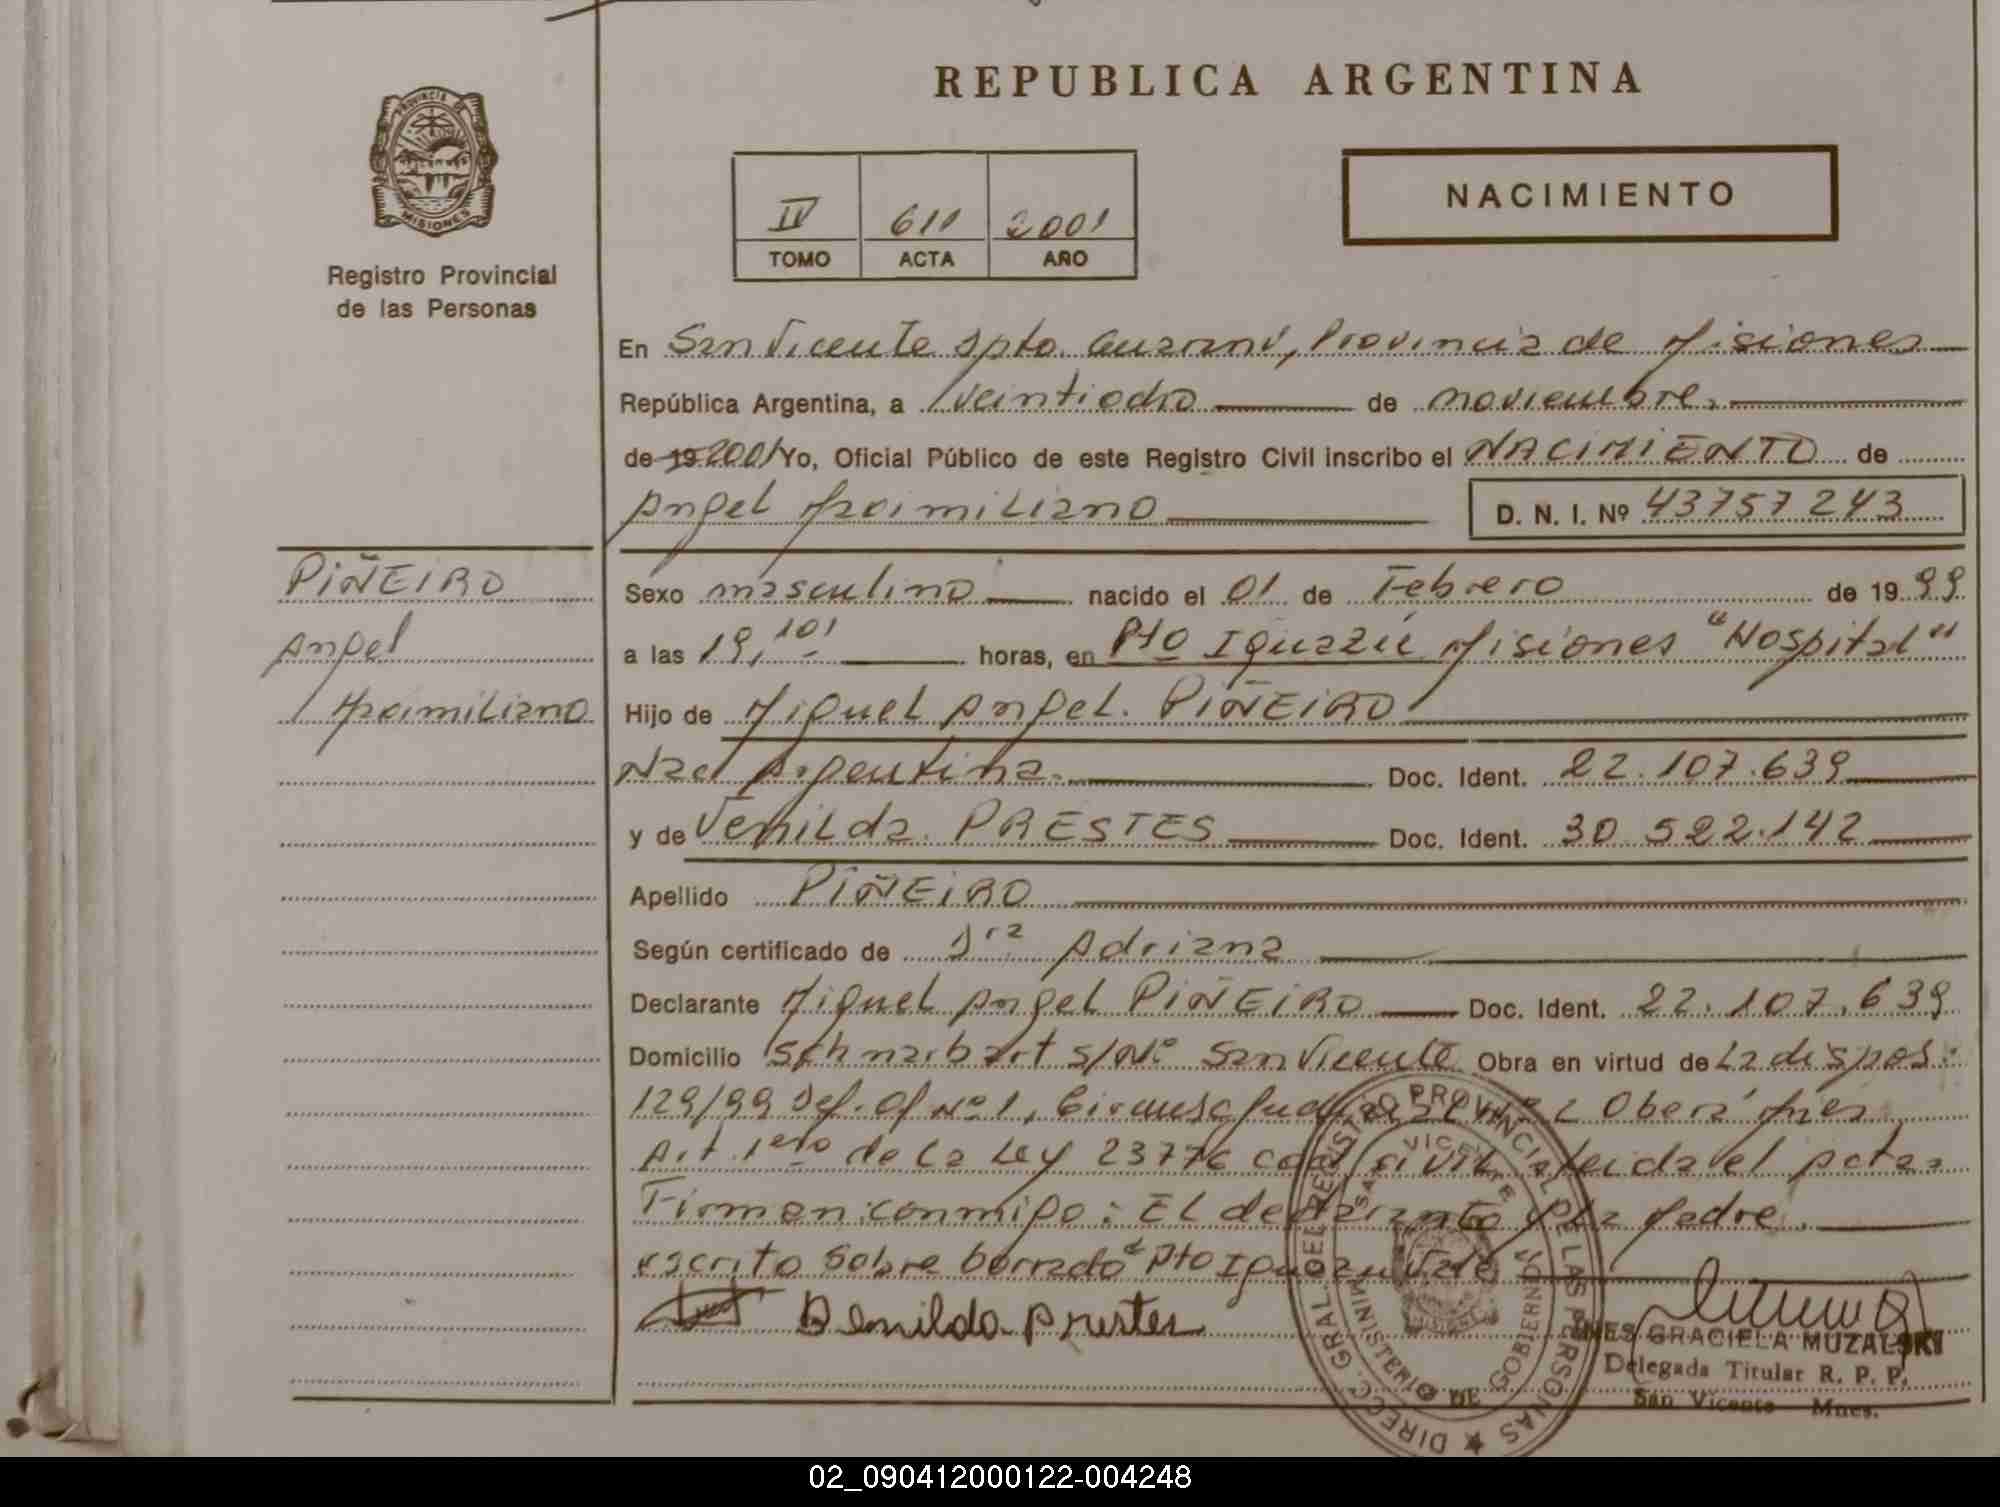 REPUBLICA ARGENTINA
PROVINCIA DE
MISIONES
Registro Provincial
de las Personas
IV 611 2001
TOMO ACTA AÑO
NACIMIENTO
En San Vicente Dpto. Guaraní, Provincia de Misiones
República Argentina, a Veintiocho de noviembre.
de 19 2001 Yo, Oficial Público de este Registro Civil inscribo el NACIMIENTO de
Angel Maximiliano D. N. I. Nº 43757243
PIÑEIRO
Angel
Maximiliano
Sexo masculino nacido el 01 de Febrero de 1999
a las 19,10' horas, en Pto Iguazú Misiones "Hospital"
Hijo de Miguel Angel. PIÑEIRO
Nac Argentina. Doc. Ident. 22.107.639
y de Venilda. PRESTES Doc. Ident. 30.522.142
Apellido PIÑEIRO
Según certificado de Dra Adriana
Declarante Miguel Angel PIÑEIRO Doc. Ident. 22.107.639
Domicilio Schnarbart S/Nº San Vicente Obra en virtud de La dispos.
129/99 Def. Of Nº 1, Circunsc Oberá Mnes
Art. 1ero de la Ley 23776 civil el Acta.
Firman conmigo: El declarante y La Madre.
escrito sobre borrado "Pto Iguazu Vale
Benilda Prestes
DIRECC. GRAL. DEL REGISTRO PROVINCIAL DE LAS PERSONAS
SAN VICENTE
MINISTERIO DE GOBIERNO
MISIONES
INES GRACIELA MUZALSKI
Delegada Titular R. P. P.
San Vicente Mnes.
02_090412000122-004248